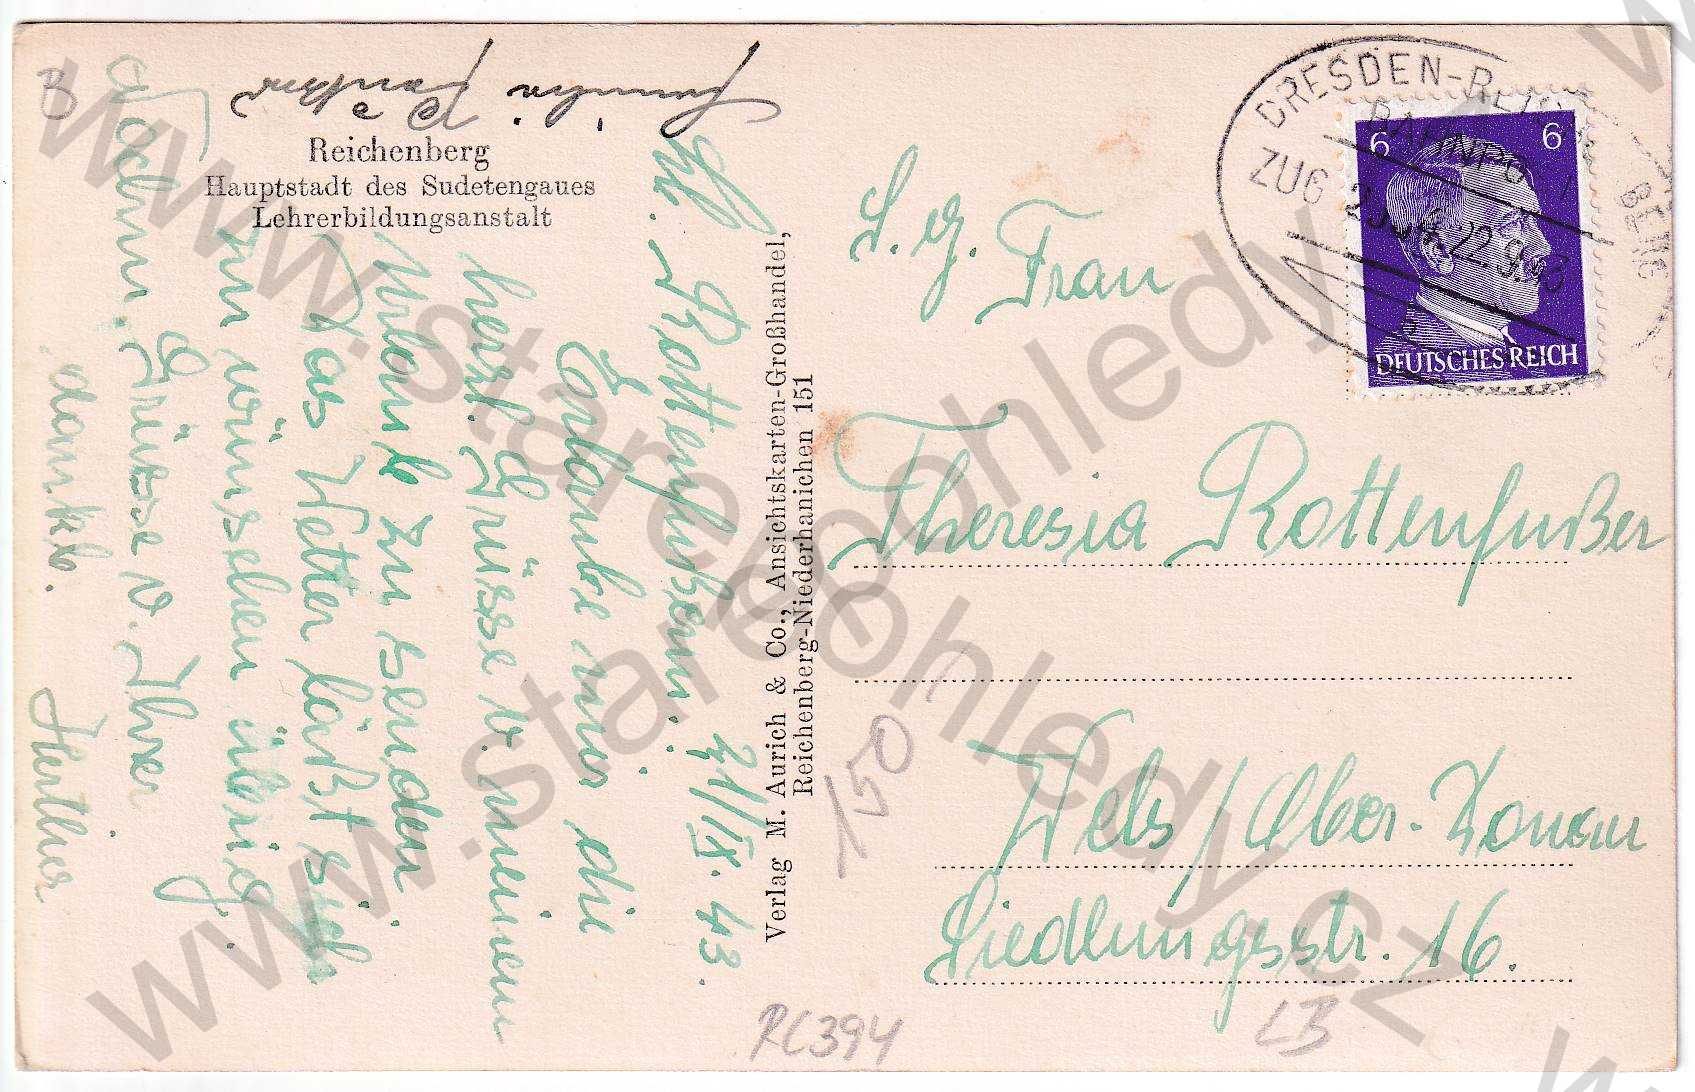 Reichenberg
Hauptstadt des Sudetengaues
Lehrerbildungsanstalt
Rottenfußer. 21/IX. 43.
Erlaube mir die
herzl. Grüsse v. meinem
Urlaub zu senden.
Das Wetter läßt sich
nur wünschen übrig.
Nochm. Grüsse v. Ihrer
dankb.
Familie
Verlag M. Aurich & Co., Ansichtskarten-Großhandel,
Reichenberg-Niederhanichen 151
DRESDEN-REICHENBERG
BAHNPOST
ZUG
22.9.43
6 6
DEUTSCHES REICH
S. g. Frau
Theresia Rottenfußer
Wels/Ober-Donau
Siedlungsstr. 16.
150
PC394
LB
B
www.starepohledy.cz
www.starepohledy.cz